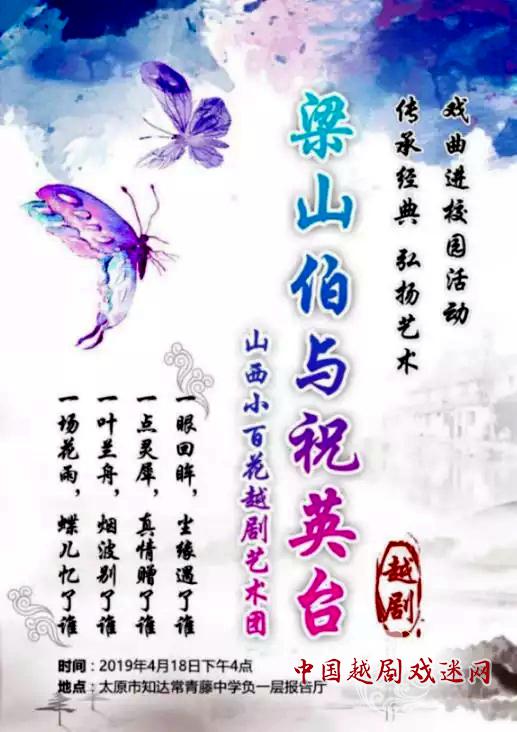 戏曲进校园活动
传承经典 弘扬艺术
梁山伯与祝英台
山西小百花越剧艺术团
一眼回眸，尘缘遇了谁
一点灵犀，真情赠了谁
一叶兰舟，烟波别了谁
一场花雨，蝶儿忆了谁
越剧
时间：2019年4月18日下午4点
地点：太原市知达常青藤中学负一层报告厅
中国越剧戏迷网